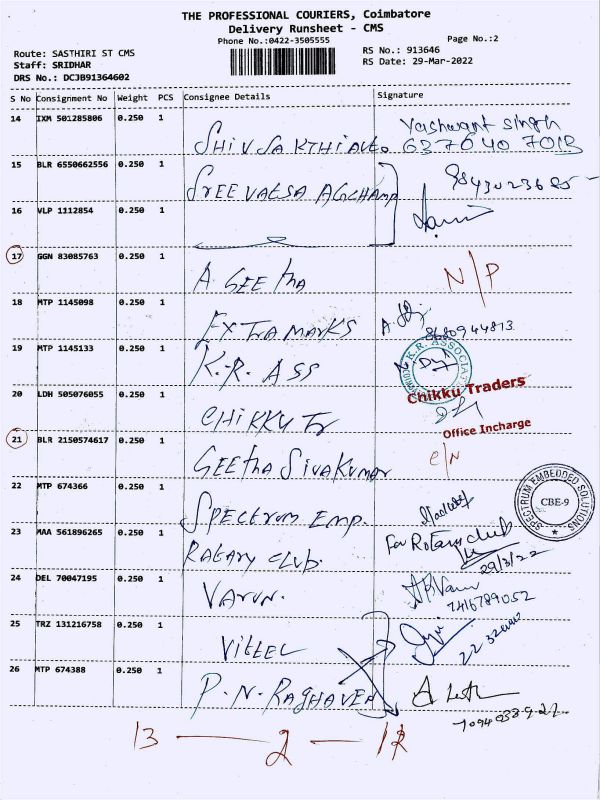 THE PROFESSIONAL COURIERS, Coimbatore
Delivery Runsheet - CMS
Phone No.:0422-3505555
Page No.:2
Route: SASTHIRI ST CMS
Staff: SRIDHAR
DRS No.: DCJB91364602
RS No.: 913646
RS Date: 29-Mar-2022
S No Consignment No Weight PCS Consignee Details Signature
14 IXM 501285806 0.250 1 SHIV SAKTHI AUTO Yashwant Singh
63760 40 7013
15 BLR 6550662556 0.250 1 SREEVATSA AGCHAMP 9843023685
16 VLP 1112854 0.250 1
17 GGN 83085763 0.250 1 A. GEEtha N/P
18 MTP 1145098 0.250 1 EXTRAMARKS 8680944813
19 MTP 1145133 0.250 1 K.R. ASS K.R. ASSOCIATES
20 LDH 505076055 0.250 1 CHIKKU Tr Chikku Traders
Office Incharge
21 BLR 2150574617 0.250 1 GEEtha SivaKumar C/N
22 MTP 674366 0.250 1 SPECTRUM EMP. SPECTRUM EMBEDDED SOLUTIONS
CBE-9
23 MAA 561896265 0.250 1 ROTARY CLUB. For Rotary club
29/3/22
24 DEL 70047195 0.250 1 VARUN. 7416789052
25 TRZ 131216758 0.250 1 VITTEL
26 MTP 674388 0.250 1 P.N. RAGHAVEN
13 — 2 — 12